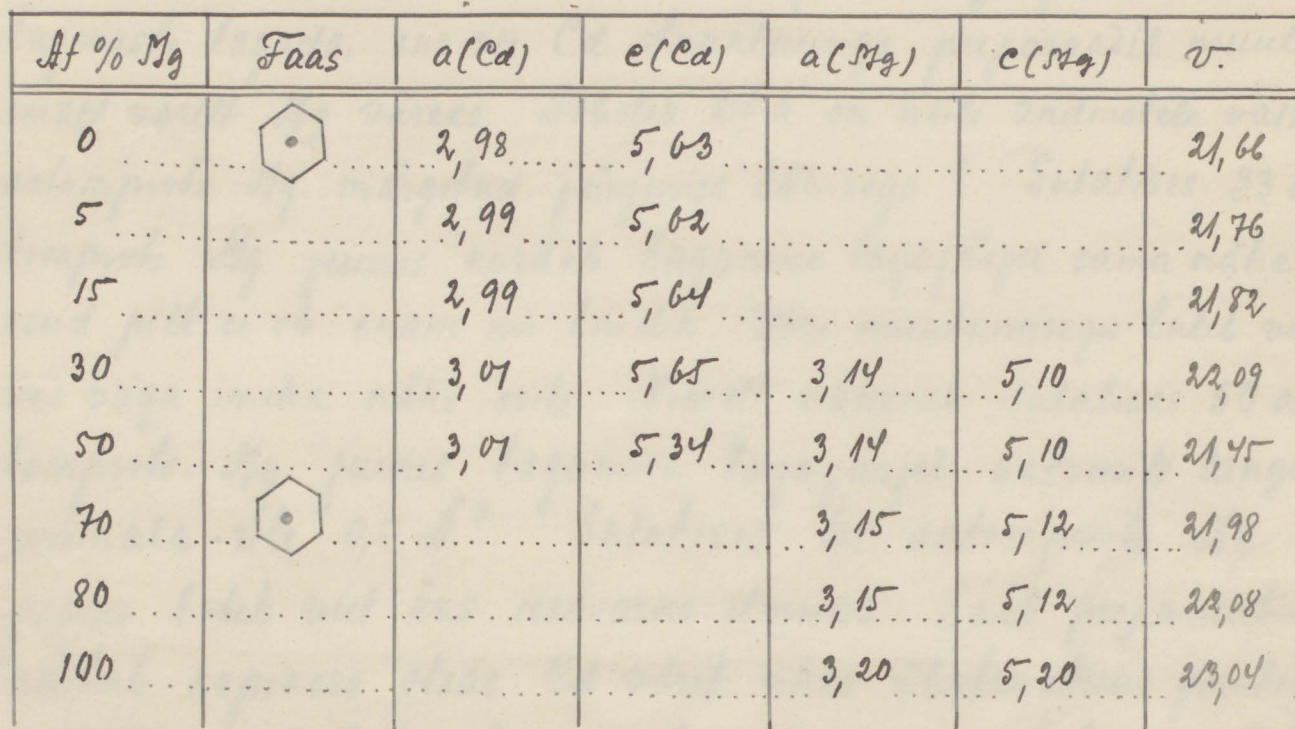 At % Mg Faas a(Cd) c(Cd) a(Mg) c(Mg) v.
0 2,98 5,63 21,66
5 2,99 5,62 21,76
15 2,99 5,64 21,82
30 3,01 5,65 3,14 5,10 22,09
50 3,01 5,34 3,14 5,10 21,45
70 3,15 5,12 21,98
80 3,15 5,12 22,08
100 3,20 5,20 23,04